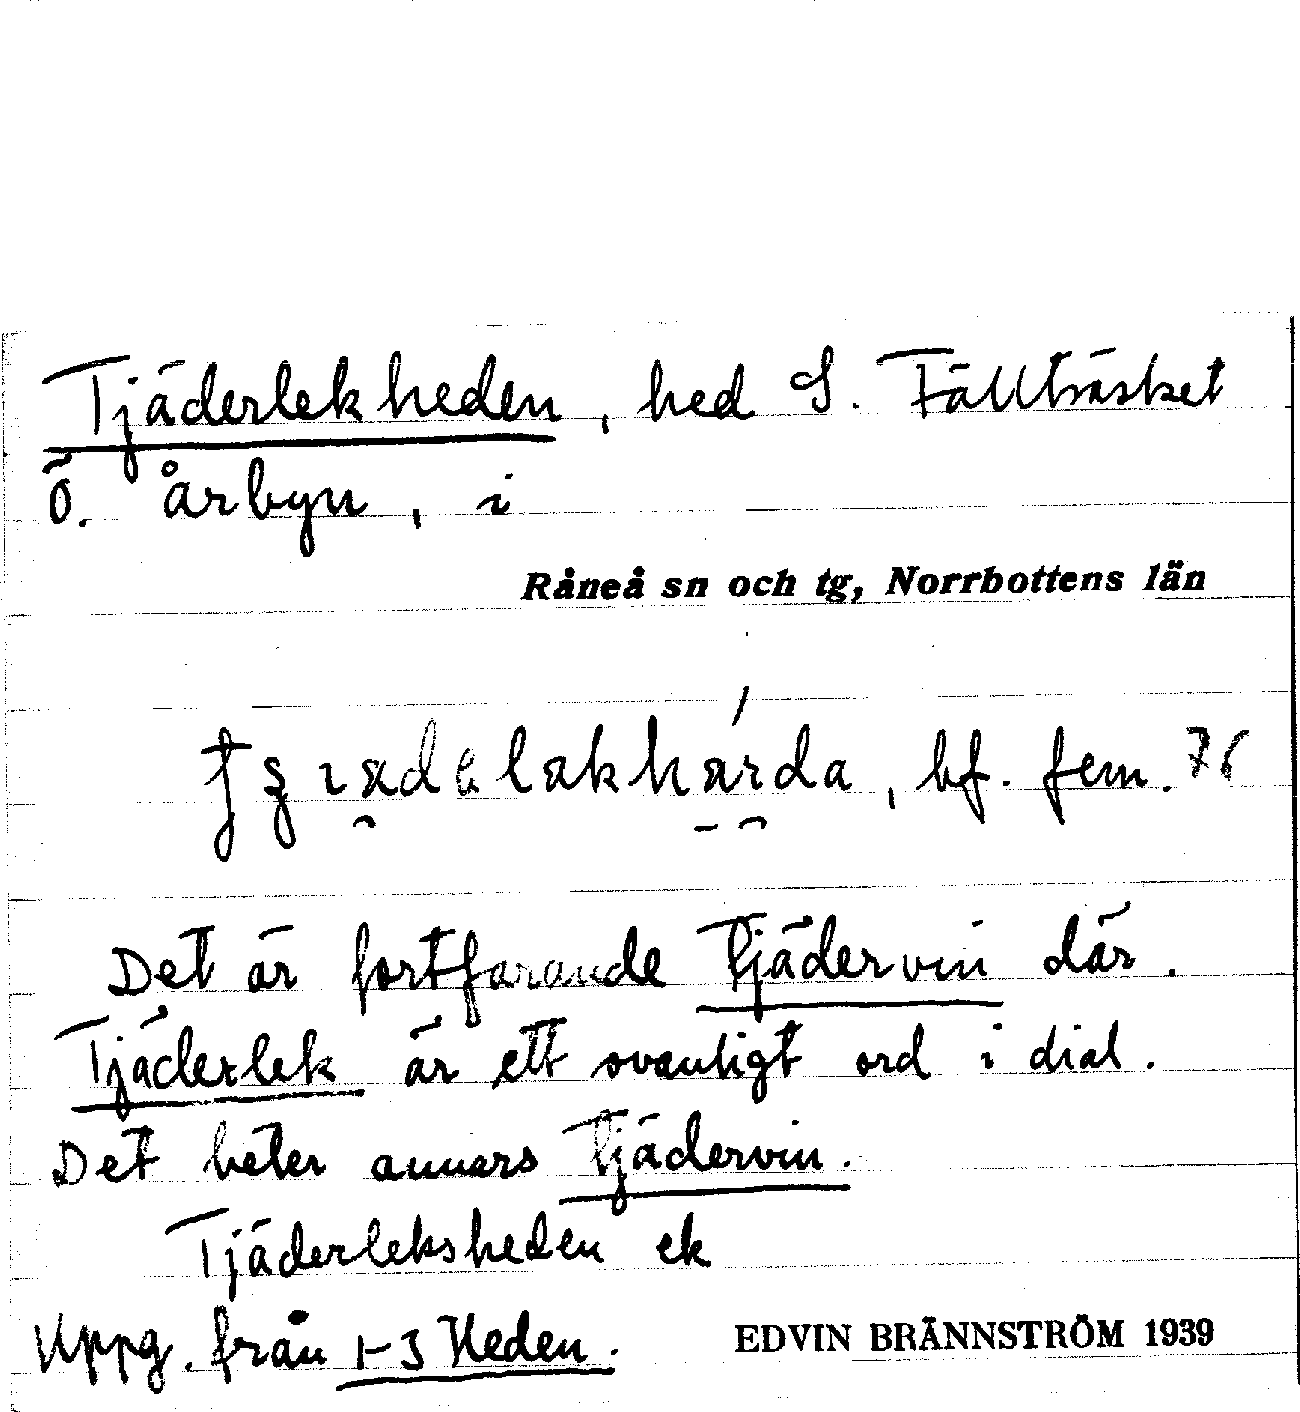 Tjäderlekheden, hed S. Fällträsket
Ö. Årbyn, i
Råneå sn och tg, Norrbottens län
bf. fem. 76
Det är fortfarande Tjädervin där.
Tjäderlek är ett ovanligt ord i dial.
Det heter annars Tjädervin.
Tjäderleksheden ek
Uppg. från 1-3 Heden.
EDVIN BRÄNNSTRÖM 1939